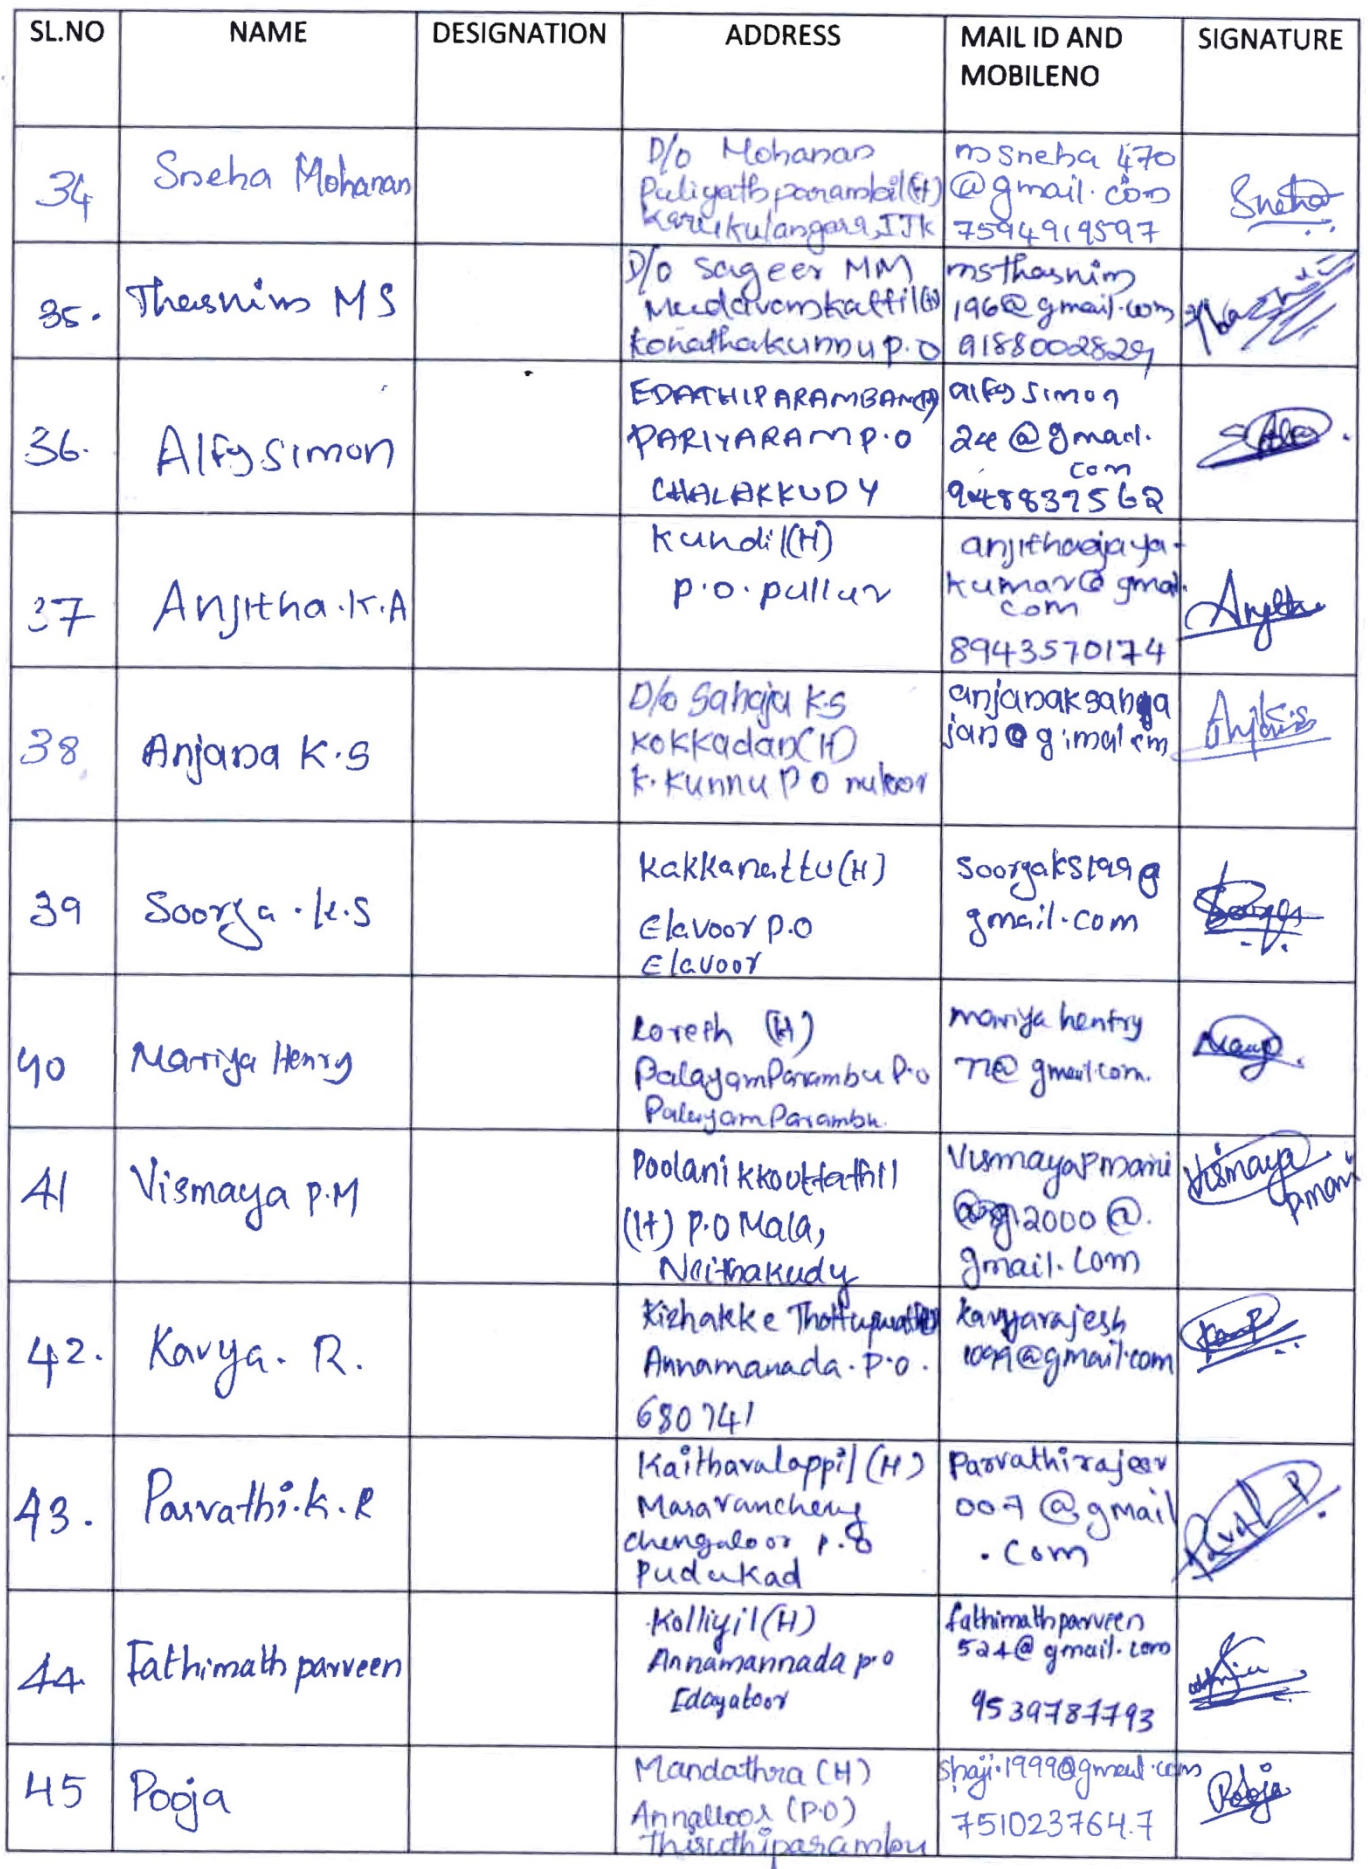 SL.NO NAME DESIGNATION ADDRESS MAIL ID AND MOBILENO SIGNATURE
34 Sneha Mohanan
D/o Mohanan
Puliyathparambil(H)
Karukulangara, IJK
msneha 470
@gmail.com
7594919597
Sneha
35. Thasnim MS
D/o Sageer MM
Konathakunnu p.o
msthasnim
196@gmail.com
9188002829
36. Alfy simon
EDATHIPARAMBAN(H)
PARIYARAM P.O
CHALAKKUDY
alfy simon
24@gmail.
com
37 Anjitha.K.A
Kundil(H)
P.O. pullur
kumar@gmail.
com
8943570174
38 Anjana K.S
D/o Sahaja K.S
Kokkadan(H)
K. Kunnu P O
39 Soorya.K.S
Kakkanattu(H)
Elavoor P.O
Elavoor
gmail.com
40 Mariya Henry
(H)
PalayamParambu P.O
PalayamParambu.
mariya hentry
77@gmail.com.
41 Vismaya P.M
(H) P.O Mala,
Neithakudy
VismayaPmani
2000@.
gmail.com
Vismaya
Pmani
42. Kavya. R.
Kizhakke
Annamanada. P.O.
680741
kavyarajesh
1099@gmail.com
43. Parvathi.K.R
Kaithavalappil(H)
Maravanchery
Chengaloor P.O
Pudukad
Parvathirajeev
007@gmail
.com
44. Fathimath parveen
Kolliyil(H)
Annamannada p.o
Edayatoor
fathimathparveen
524@gmail.com
9539787793
45 Pooja
Mandathra (H)
Annalloor (P.O)
Thiruthiparambu
shaji.1999@gmail.com
7510237647
Pooja